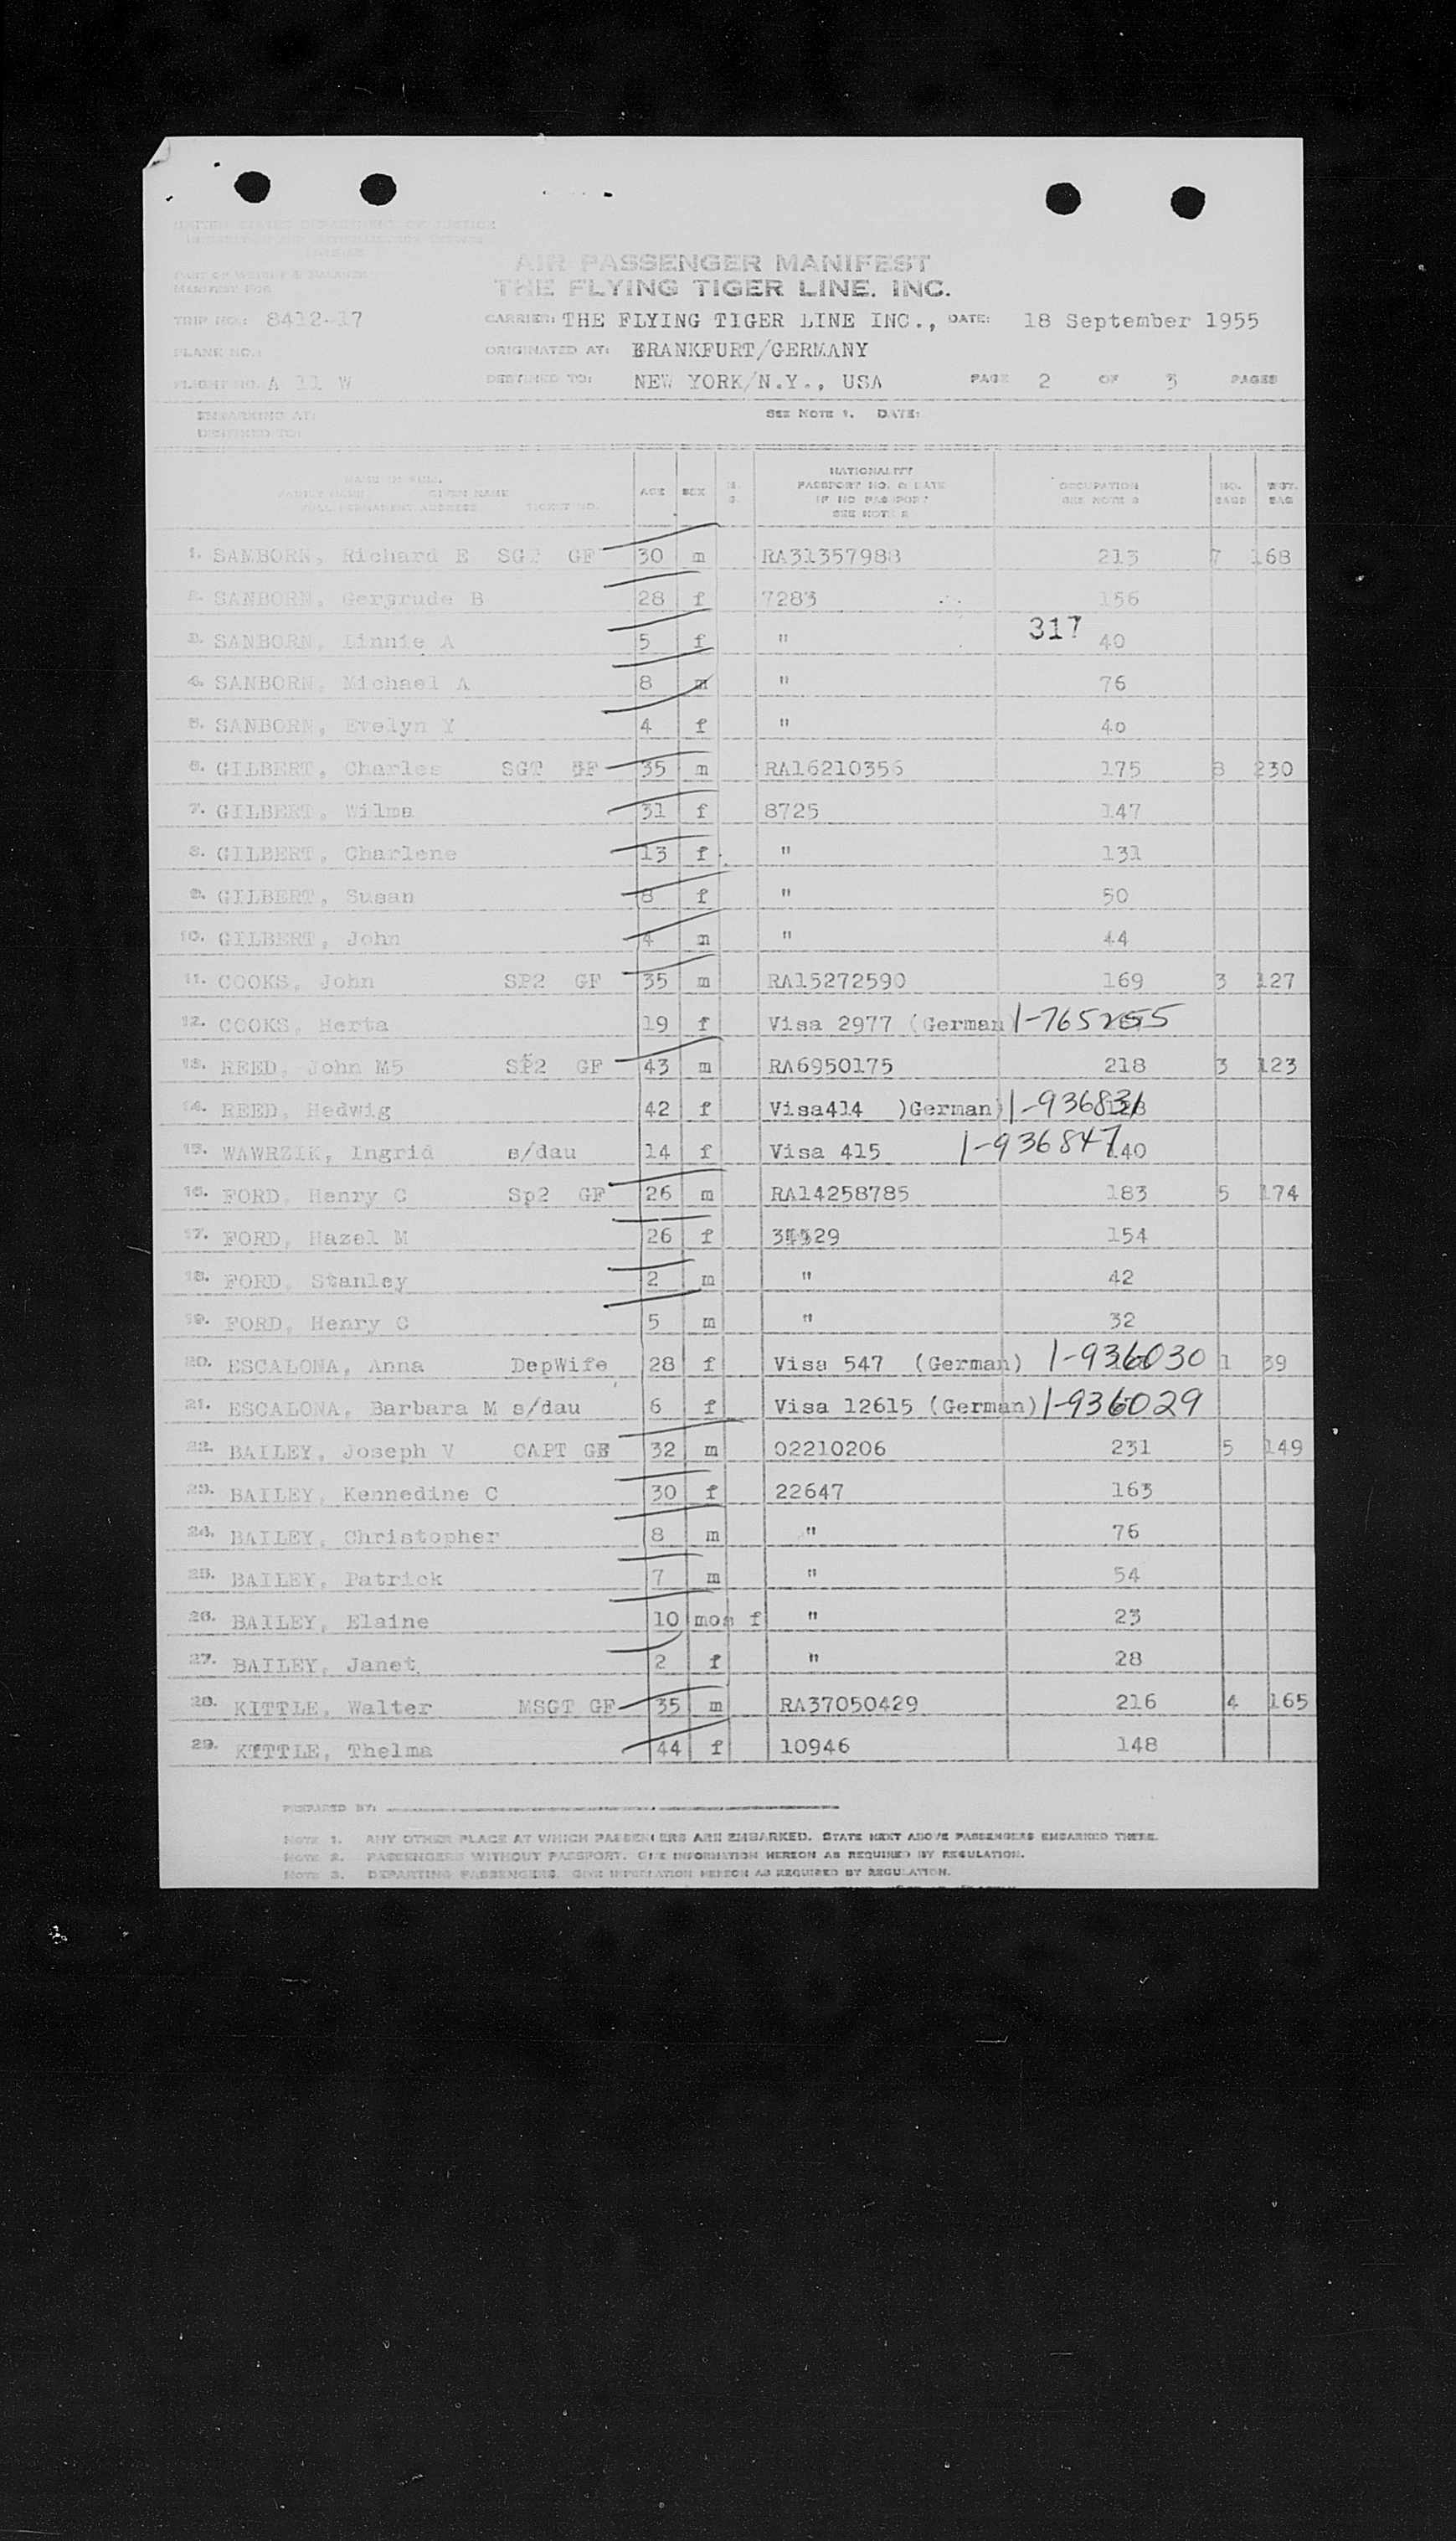 UNITED STATES DEPARTMENT OF JUSTICE
AIR PASSENGER MANIFEST
MANIFEST FOR
THE FLYING TIGER LINE. INC.
TRIP NO: 8412-17 CARRIER: THE FLYING TIGER LINE INC., DATE: 18 September 1955
PLANE NO.: ORIGINATED AT: FRANKFURT/GERMANY
FLIGHT NO. A 11 W DESTINED TO: NEW YORK/N.Y., USA PAGE 2 OF 3 PAGES
EMBARKING AT: SEE NOTE 1. DATE:
DESTINED TO:
NAME IN FULL NATIONALITY
FAMILY NAME GIVEN NAME AGE SEX PASSPORT NO. & DATE OCCUPATION NO. WGT.
FULL PERMANENT ADDRESS TICKET NO. IF NO PASSPORT SEE NOTE 3 BAGS BAG
SEE NOTE 2
1. SANBORN, Richard E SGT GF 30 m RA31357988 213 7 168
2. SANBORN, Gergrude B 28 f 7283 156
3. SANBORN, Linnie A 5 f " 317 40
4. SANBORN, Michael A 8 m " 76
5. SANBORN, Evelyn Y 4 f " 40
6. GILBERT, Charles SGT GF 35 m RA16210356 175 8 230
7. GILBERT, Wilma 31 f 8725 147
8. GILBERT, Charlene 13 f " 131
9. GILBERT, Susan 8 f " 50
10. GILBERT, John 4 m " 44
11. COOKS, John SP2 GF 35 m RA15272590 169 3 127
12. COOKS, Herta 19 f Visa 2977 (German
13. REED, John M5 SP2 GF 43 m RA6950175 218 3 123
14. REED, Hedwig 42 f Visa414 )German) 1-936831 128
15. WAWRZIK, Ingrid s/dau 14 f Visa 415 1-936847 140
16. FORD, Henry C Sp2 GF 26 m RA14258785 183 5 174
17. FORD, Hazel M 26 f 154
18. FORD, Stanley 2 m " 42
19. FORD, Henry C 5 m " 32
20. ESCALONA, Anna DepWife 28 f Visa 547 (German) 1-936030 1 39
21. ESCALONA, Barbara M s/dau 6 f Visa 12615 (German) 1-936029
22. BAILEY, Joseph V CAPT GF 32 m 02210206 231 5 149
23. BAILEY, Kennedine C 30 f 22647 163
24. BAILEY, Christopher 8 m " 76
25. BAILEY, Patrick 7 m " 54
26. BAILEY, Elaine 10 mos f " 23
27. BAILEY, Janet 2 f " 28
28. KITTLE, Walter MSGT GF 35 m RA37050429 216 4 165
29. KITTLE, Thelma 44 f 10946 148
PREPARED BY:
NOTE 1. ANY OTHER PLACE AT WHICH PASSENGERS ARE EMBARKED. STATE NEXT ABOVE PASSENGERS EMBARKED THERE.
NOTE 2. PASSENGERS WITHOUT PASSPORT. GIVE INFORMATION HEREON AS REQUIRED BY REGULATION.
NOTE 3. DEPARTING PASSENGERS. GIVE INFORMATION HEREON AS REQUIRED BY REGULATION.